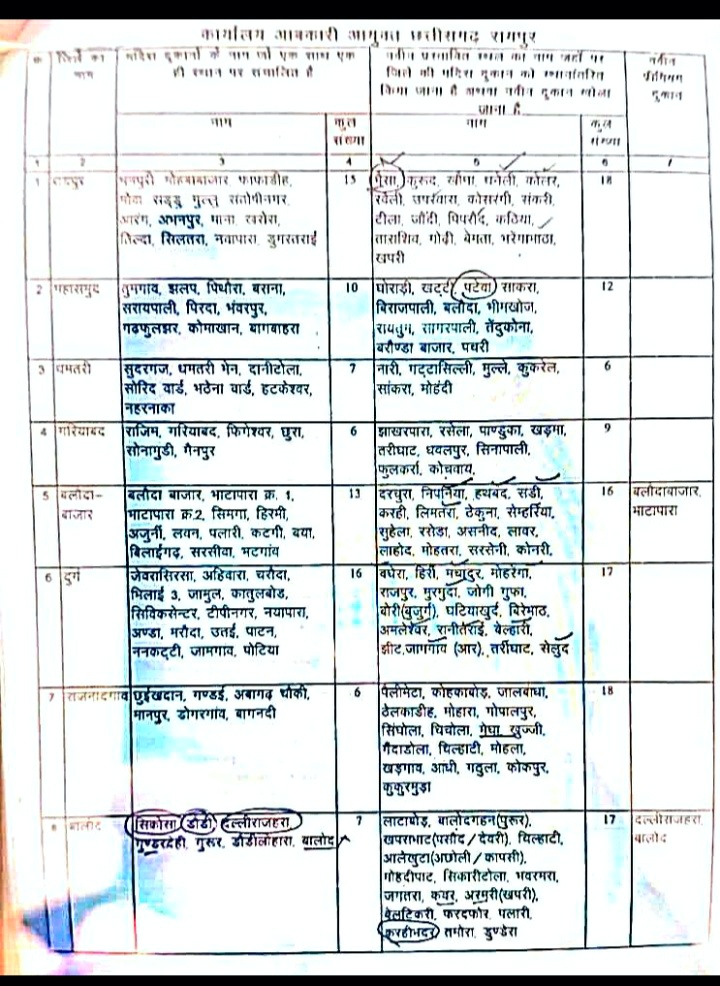 कार्यालय आबकारी आयुक्त छत्तीसगढ़ रायपुर
क्र जिले का नाम
मदिरा दुकानों के नाम जो एक साथ एक
ही स्थान पर संचालित है
नवीन प्रस्तावित स्थल का नाम जहाँ पर
जिले की मदिरा दुकान को स्थानांतरित
किया जाना है अथवा नवीन दुकान खोला
जाना है
नवीन
प्रीमियम
दुकान
नाम कुल संख्या नाम कुल संख्या
1 2 3 4 5 6 7
1 रायपुर
भनपुरी मोहबाबाजार, फाफाडीह,
सड्डू गुल्लु संतोषीनगर,
आरंग, अभनपुर, माना खरोरा,
तिल्दा, सिलतरा, नवापारा,
15
भैंसा, कुरूद, खौना
उपरवारा, कोसरंगी, संकरी,
टीला, जौंदी, पिपरौद, कठिया,
ताराशिव, गोढ़ी, बेगता, भरेंगाभाठा,
खपरी
18
2 महासमुंद
तुमगांव, झलप, पिथौरा, बसना,
सरायपाली, पिरदा, भंवरपुर,
गढ़फुलझर, कोमाखान, बागबाहरा
10
घोराड़ी, खट्टी, पटेवा साकरा,
बिराजपाली, बलौदा, भीमखोज,
रायतुम, सागरपाली, तेंदुकोना,
बरौण्डा बाजार, पथरी
12
3 धमतरी
सुदरगंज, धमतरी मेन, दानीटोला,
सोरिद वार्ड, भठेना वार्ड, हटकेश्वर,
नहरनाका
7
नारी, गट्टासिल्ली, मुल्ले, कुकरेल,
सांकरा, मोहंदी
6
4 गरियाबंद
राजिम, गरियाबंद, फिंगेश्वर, छुरा,
सोनामुडी, मैनपुर
6
झाखरपारा, रसेला, पाण्डुका, खड़मा,
तरीघाट, धवलपुर, सिनापाली,
फुलकर्रा, कोचवाय,
9
5 बलौदा-बाजार
बलौदा बाजार, भाटापारा क्र. 1,
भाटापारा क्र.2, सिमगा, हिरमी,
अर्जुनी, लवन, पलारी, कटगी, बया,
बिलाईगढ़, सरसीवा, भटगांव
13
दरचुरा, निपनिया, हथबंद, संडी,
करही, लिमतरा, ठेकुना, सेम्हरिया,
सुहेला, रसेडा, असनीद, लावर,
लाहोद, मोहतरा, सरसेनी, कोनरी,
16
बलौदाबाजार,
भाटापारा
6 दुर्ग
जेवरासिरसा, अहिवारा, चरौदा,
भिलाई 3, जामुल, कातुलबोड,
सिविकसेन्टर, टीपीनगर, नयापारा,
अण्डा, मरौदा, उतई, पाटन,
ननकट्टी, जामगाव, पोटिया
16
बघेरा, हिरी, मचांदुर, मोहरेंगा,
राजपुर, मुरमुदा, जोगी गुफा,
बोरी(बुजुर्ग), घटियाखुर्द, बिरेभाठ,
अमलेश्वर, रानीतराई, बेल्हारी,
झीट,जामगांव (आर), तर्रीघाट, सेलुद
17
7 राजनांदगांव
छुईखदान, गण्डई, अंबागढ़ चौकी,
मानपुर, डोंगरगांव, बागनदी
6
पैलीमेटा, कोहकाबोड़, जालबांधा,
ठेलकाडीह, मोहारा, गोपालपुर,
सिंघोला, चिचोला, मेघा खुज्जी,
गैंदाटोला, चिल्हाटी, मोहला,
खड़गांव, आंधी, गढुला, कोकपुर,
कुकुरमुड़ा
18
8 बालोद
सिकोसा डौंडी, दल्लीराजहरा,
गुण्डरदेही, गुरूर, डौंडीलोहारा, बालोद
7
लाटाबोड़, बालोदगहन(पुरूर),
खपराभाट(परसौद / देवरी), चिल्हाटी,
आलेखुटा(अछोली / कापसी),
मोहदीपाट, सिकारीटोला, भवरमरा,
जगतरा, कंवर, अरमरी(खपरी),
बेलटिकरी, फरदफोर, पलारी,
करहीभदर, तमोरा, डुण्डेरा
17
दल्लीराजहरा,
बालोद